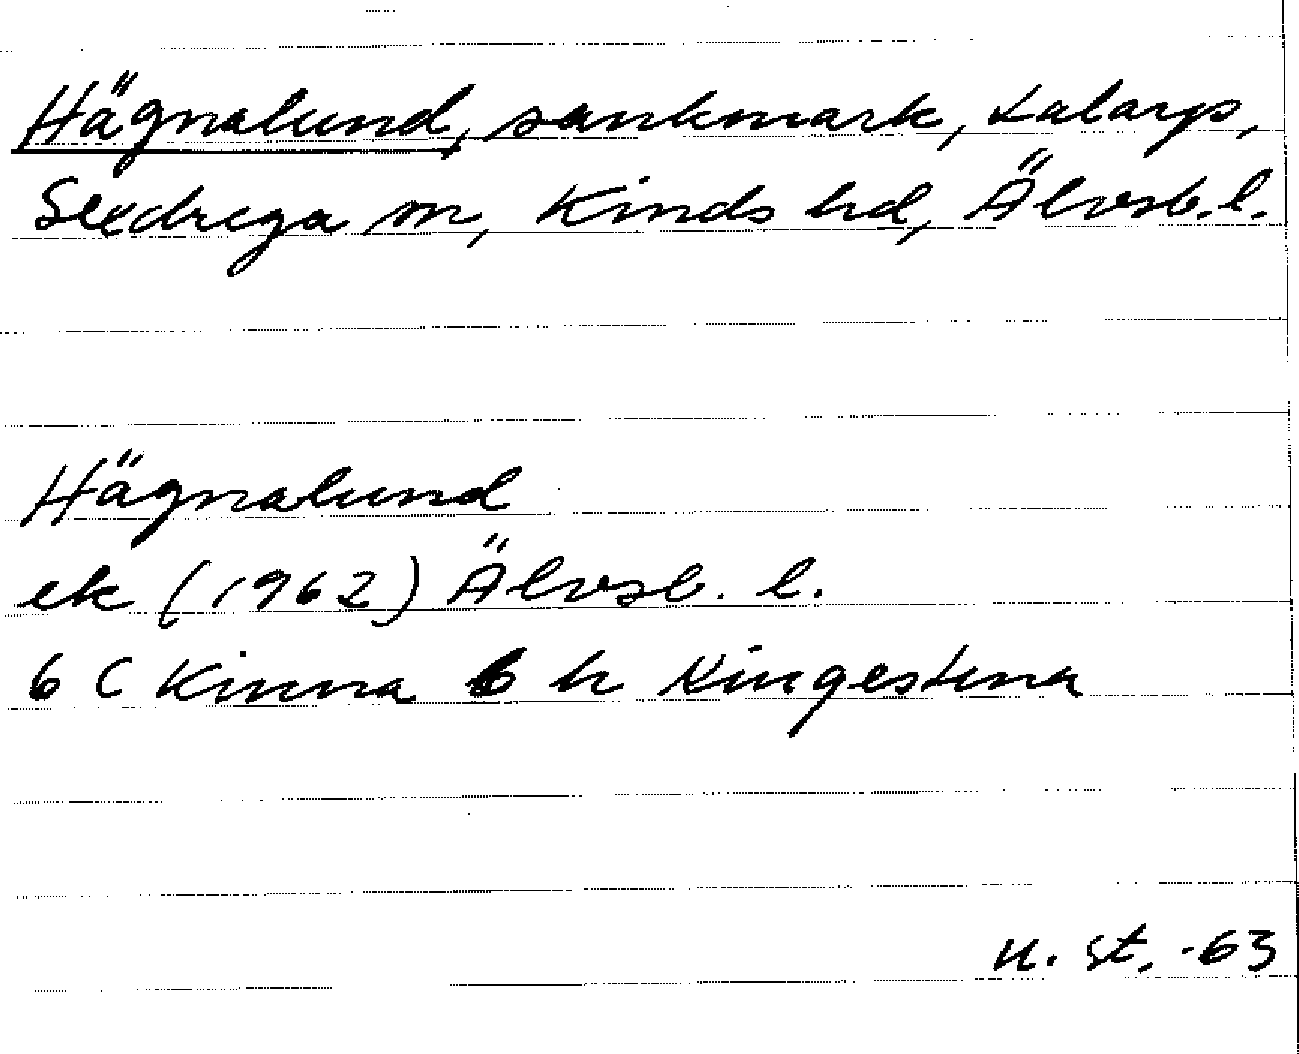 Hägnalund, sankmark, Kalarp,
Sexdrega sn, Kinds hd, Älvsb. l.
Hägnalund
ek (1962) Älvsb. l.
6 C Kinna 6 h Kingestena
st. -63